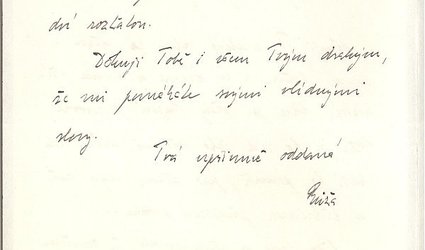 dní roztálou.
Děkuji Tobě i všem Tvým drahým,
že mi pomáháte svými vlídnými
slovy.
Tvá upřímně oddaná
Růža